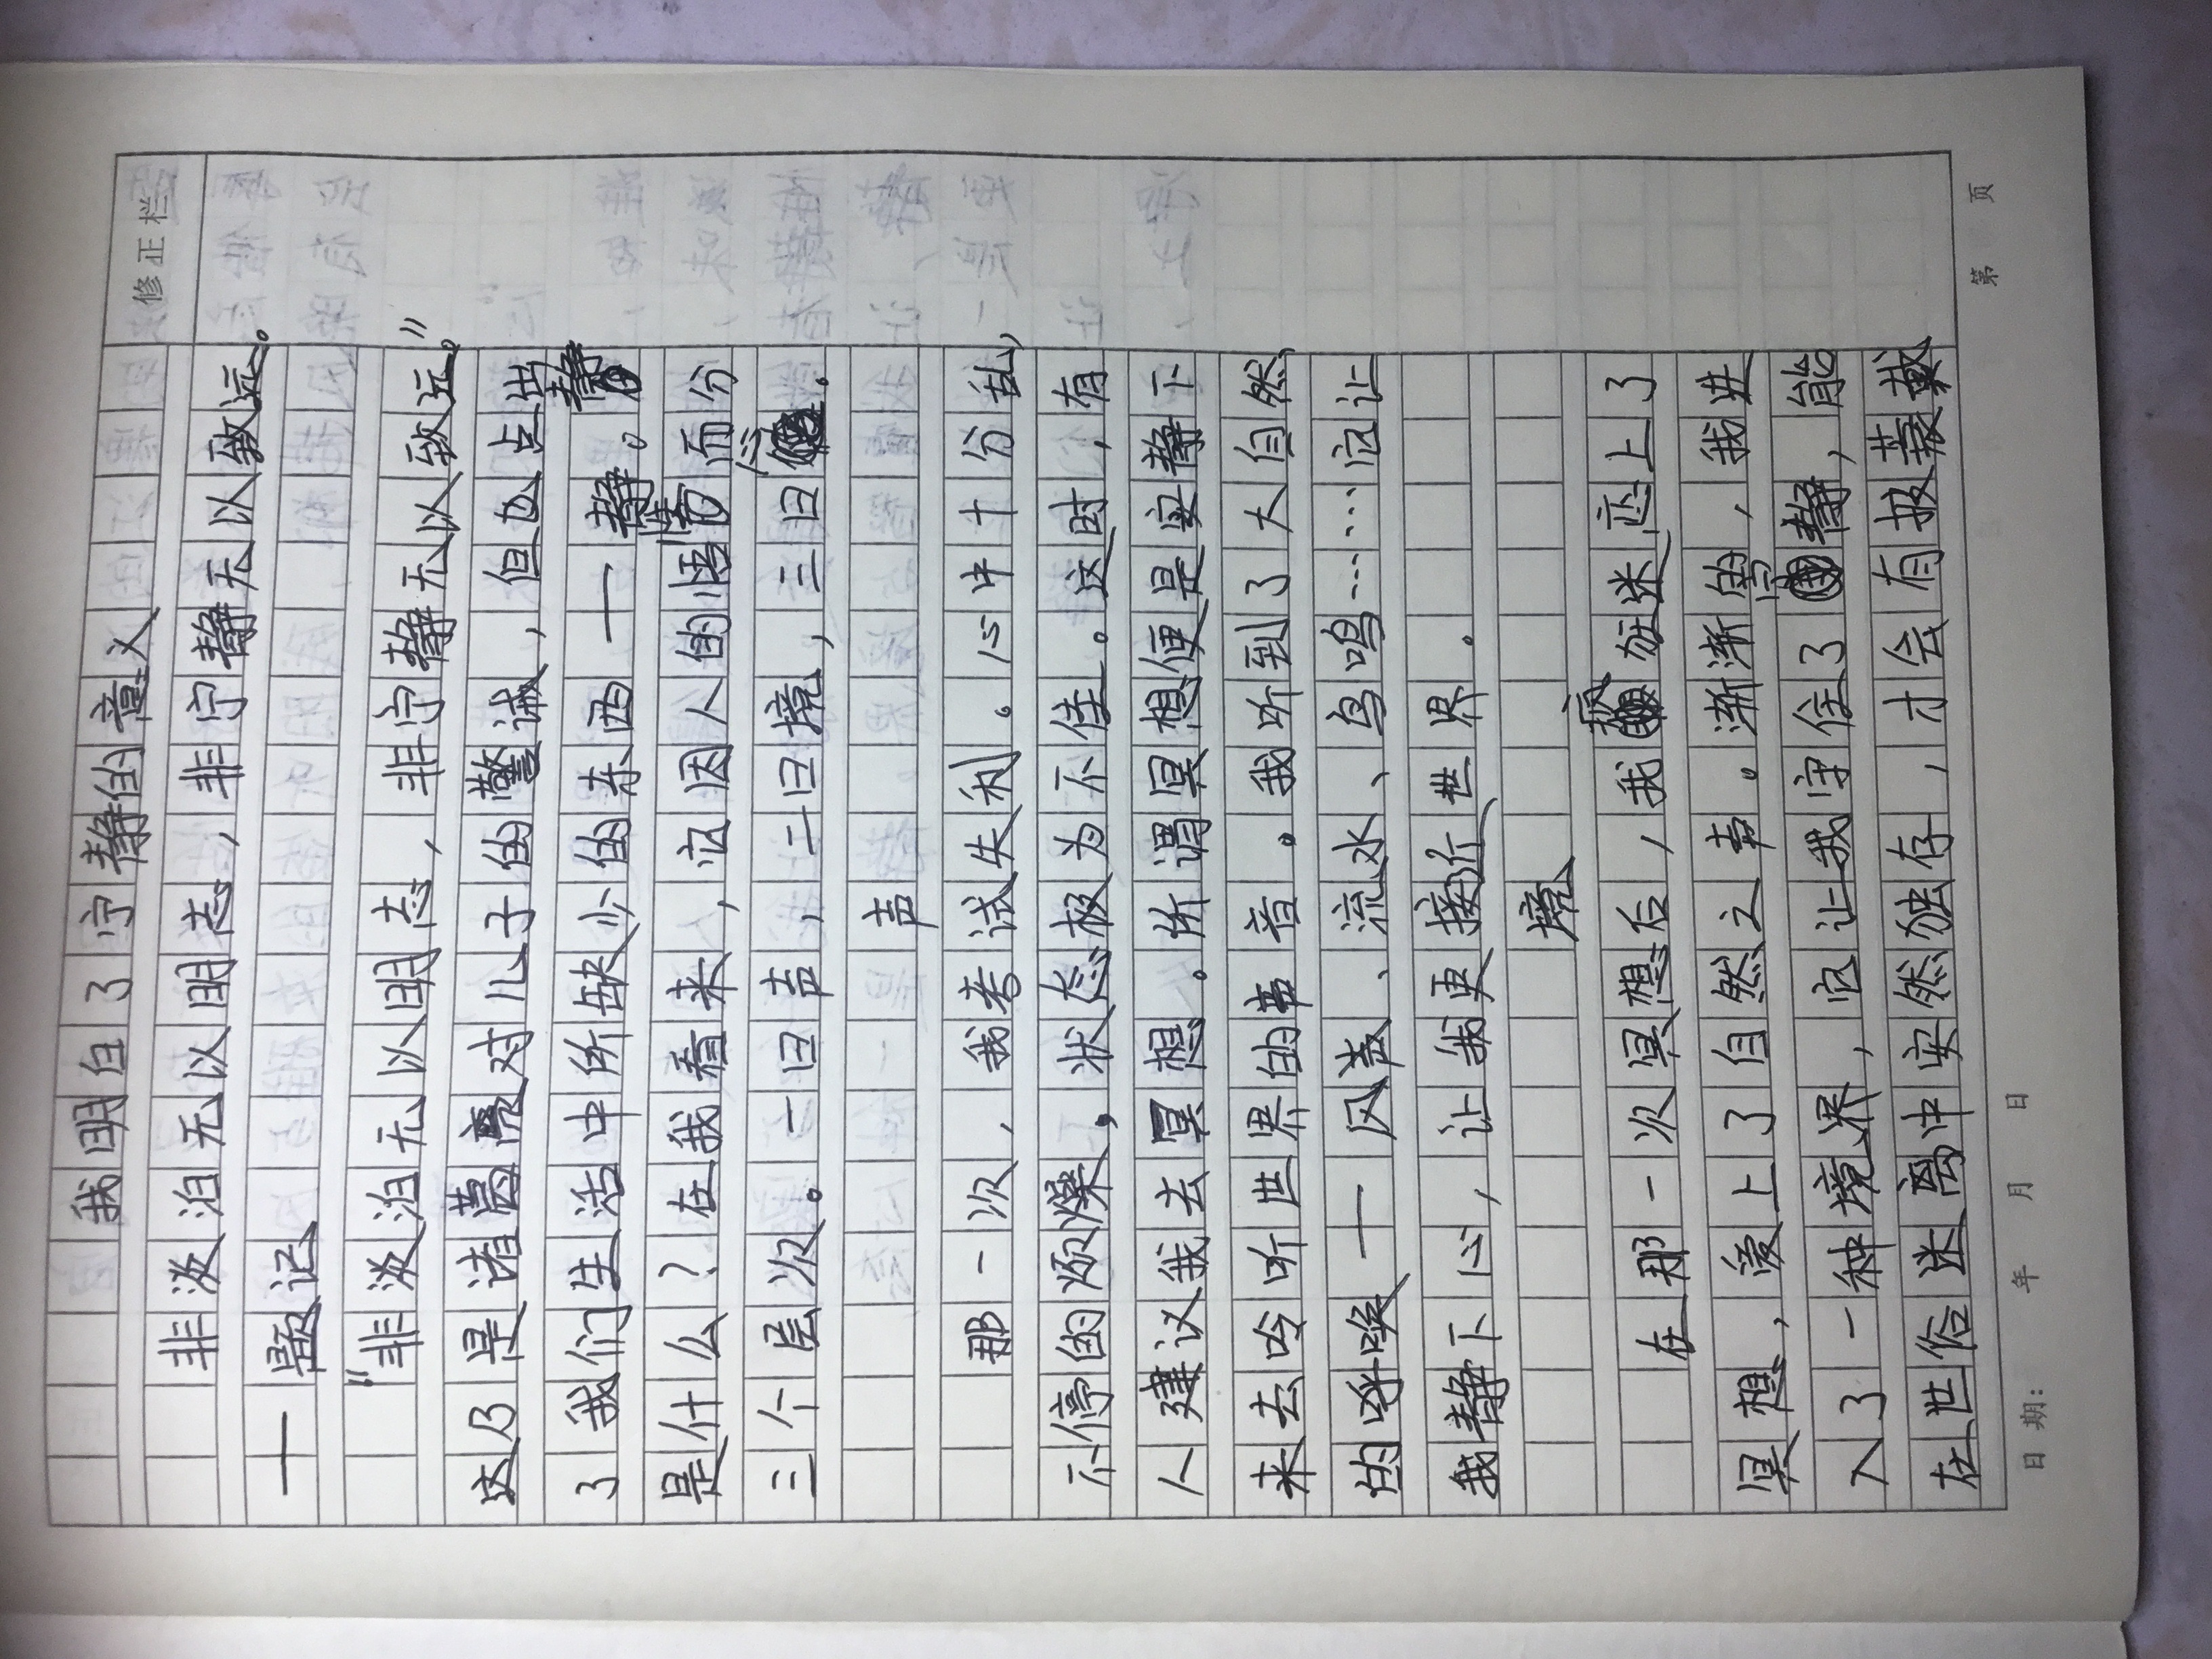 修正栏
我明白了宁静的意义
非淡泊无以明志，非宁静无以致远。
——题记
“非淡泊无以明志，非宁静无以致远。”
这乃是诸葛亮对儿子的警诫，但也点出
了我们生活中所缺少的东西——静。静
是什么？在我看来，它因人的悟而分
三个层次。一曰声，二曰境，三曰心。
声
那一次，我考试失利。心中十分乱，
不停的烦燥，状态极为不佳。这时，有
人建议我去冥想。所谓冥想便是安静下
来去吟听世界的声音。我听到了大自然
的呼唤——风声、流水、鸟鸣……它让
我静下心，让我更接近世界。
境
在那一次冥想后，我疯狂迷恋上了
冥想，爱上了自然之声。渐渐的，我进
入了一种境界，它让我守住了宁静，能
在世俗迷离中安然独存，才会有披蓑戴
日期： 年 月 日
第 页